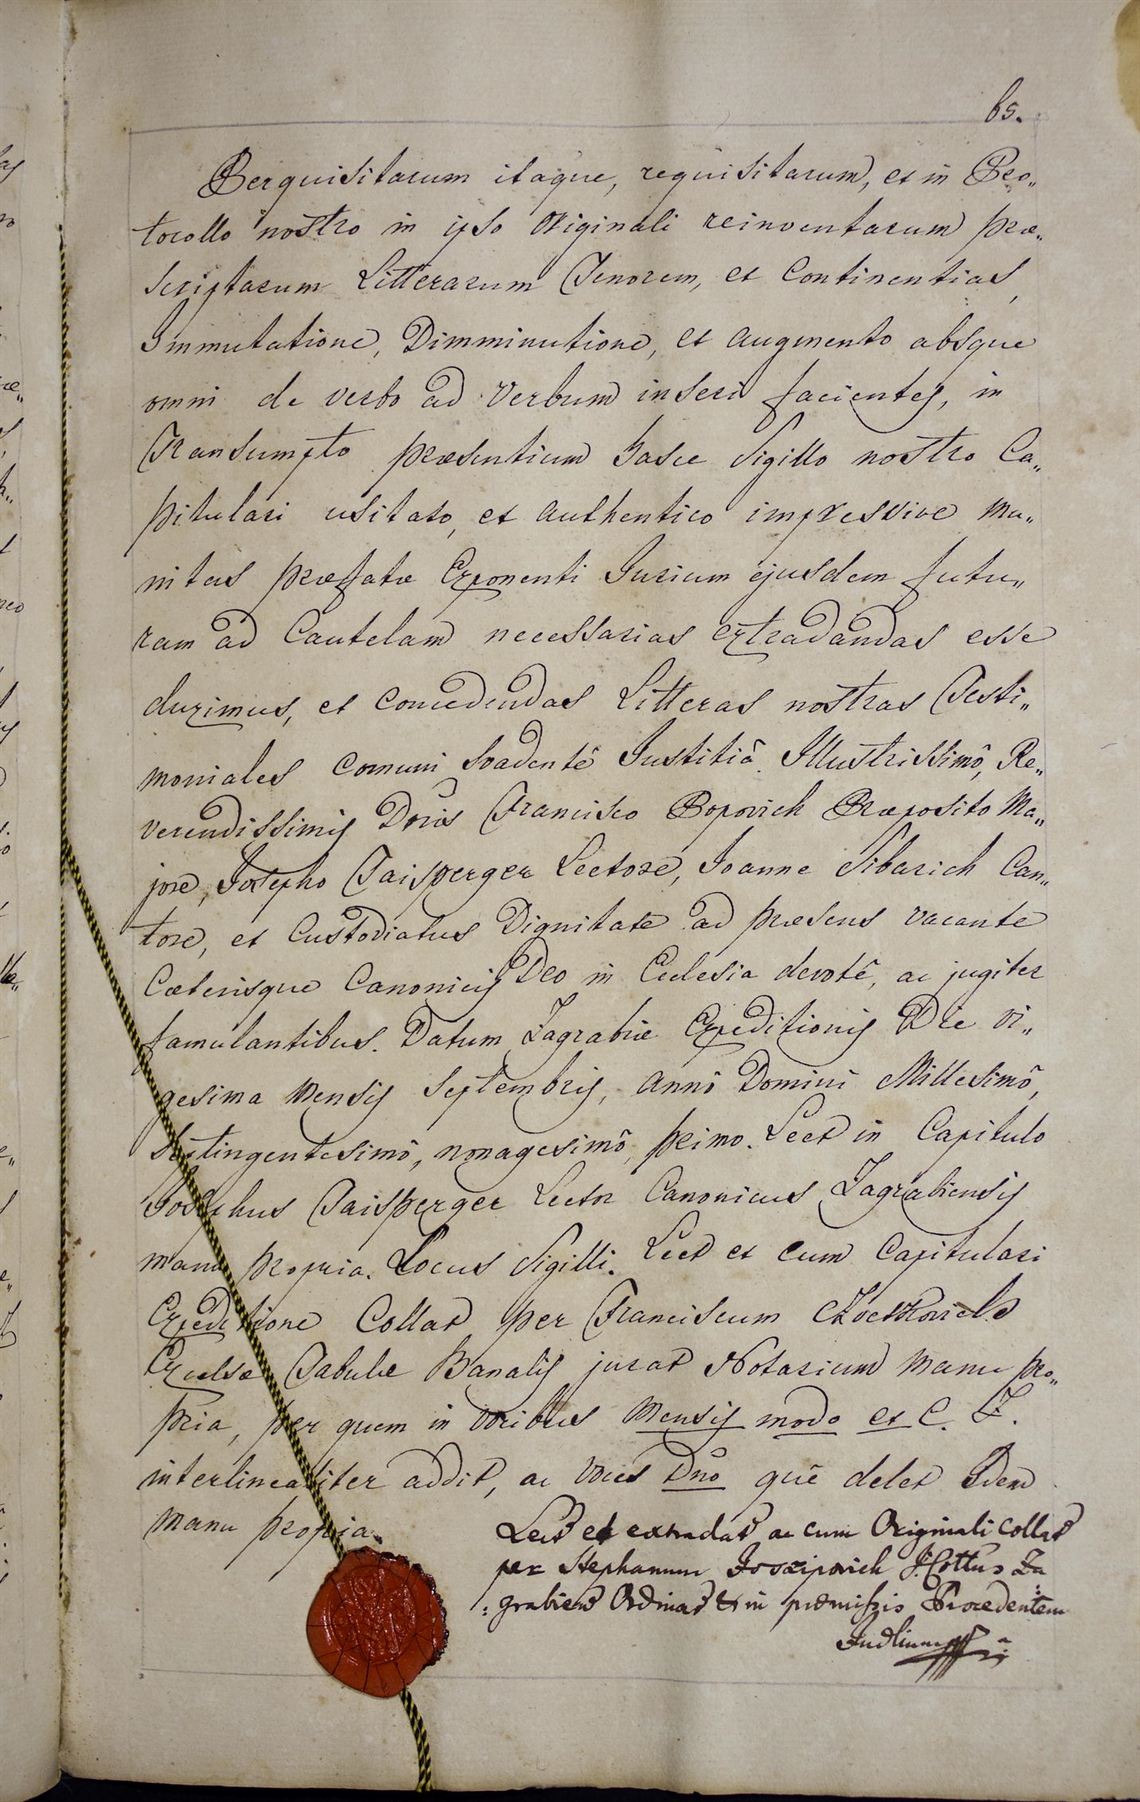 65.
Perquisitarum itaque, requisitarum, et in Pro„
tocollo nostro in ipso Originali reinventarum præ„
scriptarum Litterarum Tenorem, et Continentias,
Immutatione, Dimminutione, et augmento absque
omni de verbo ad verbum inseri facientes, in
Transumpto præsentium hasce Sigillo nostro Ca„
pitulari usitato, et authentico impressive mu„
nitas præfatæ Exponenti Jurium ejusdem futu„
ram ad Cautelam necessarias extradandas esse
duximus, et concedendas Litteras nostras Testi„
moniales comuni svadentê Justitiâ. Illustrissimô, Re„
verendissimis Dnis Francisco Popovich Præposito Ma„
jore, Josepho Taisperger Lectore, Joanne Sibarich Can„
tore, et Custodiatus Dignitate ad præsens vacante
Cæterisque Canonicis Deo in Ecclesia devotê, ac jugiter
famulantibus. Datum Zagrabiæ Expeditionis Die vi„
gesima Mensis Septembris, annô Domini Millesimô,
Septingentesimô, nonagesimô, primo. Lect in Capitulo
Josephus Taisperger Lector Canonicus Zagrabiensis
manu propria. Locus Sigilli. Lect et cum Capitulari
Expeditione Collat per Franciscum
Excelsæ Tabulæ Banalis jurat Notarium manu pro„
pria, per quem in vocibus Mensis modo et C. Z.
interlinealiter addit, ac voces Dno quê delet Idem
manu propria.
Lect et extradat ac cum Originali collat
per Stephanum Josipovich I: Cottus Za
: grabiens Ordinar & in præmissis Procedentem
Judlium